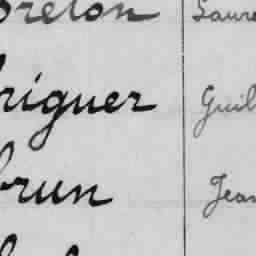 Breton Laure
riguer Guil
brun Jean